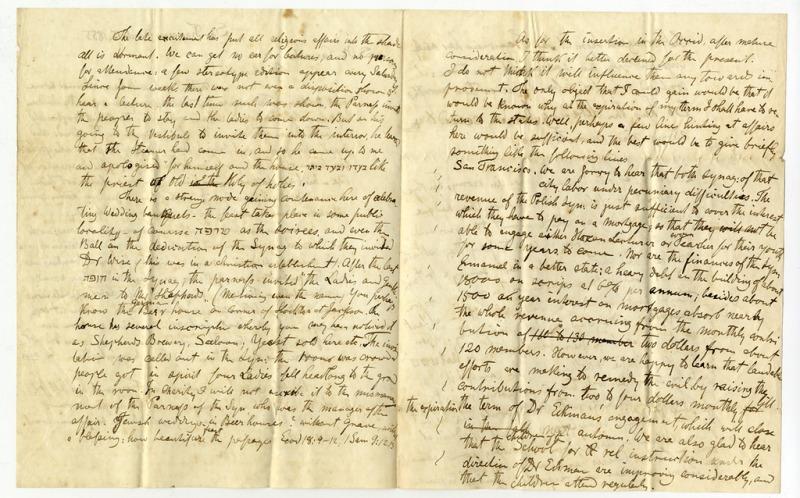 The late excitement has put all religious affairs into the shade
all is dormant. We can get no ear for lectures, and no
for attendance; a few stereotype edition appear every Saturday
Since four weeks there was not even a disposition shown to
hear a lecture, the last time such was shown the Parnass invited
the people to stay and the ladies to come down. But on his
going to the Vestibule to invite them into the interior, he learned
that the Steamer had come in, and so he came up to me
and apologized for himself and the house, בעדו ובעד ביתו like
the priest of old in the Holy of holies.
There is a strong mode gaining countenance here of celebra
ting wedding banquets - the feast takes place in some public
locality - of course טרפה as the soirees, and even the
Ball on the dedication of the Synag to which they invited
Dr Wise; this was in a christian establishment. After the last
חופה in the Synag, the parnass invited "the Ladies and Gentle
men to the Shepherds, (me know even the name) you perhaps
know the Beer house on corner of Stockton & Jackson. the
house has several inscriptions whereby you may have noticed it
as Shepherds Brewery, Saloon, Yeast sold here etc. The invi
tation was called out in the Syn; the rooms was crowded
people got in spirit four Ladies fell headlong to the ground
in the room. In charity I will not it to the
ment of the Parnass of the Syn who was the manager of the
affair. Jewish weddings in Beer houses! without Grace, with
how beautiful the passages 18:9-12, 1 Sam 9:12-13
As for the insertion in the Occid, after mature
consideration I think it better deferred for the present.
I do not think it will influence them any toward im
provement. The only object that I could gain would be that it
would be known why at the expiration of my term I shall have to re
turn to the states. Well, perhaps a few line hinting at affairs
here would be sufficient, and the best would be to give briefly
something like the following lines
San Francisco, we are sorry to hear that both synag: of that
city labor under pecuniary difficulties. The
revenue of the Polish Syn: is just sufficient to cover the interest
which they have to pay on a mortgage; so that they will not be
able to engage either Hazan Lecturer or Teacher for their youth
for some years to come. Nor are the finances of the Syn
Emanuel in a better state; a heavy debt on the building of about
18000 on scrips at 6% per annum, besides about
1500 an year interest on mortgages absorb nearly
the whole revenue accruing from the monthly contri
bution of 110 to 130 member two dollars from about
120 members. However, we are happy to learn that laudable
efforts are making to remedy the evil by raising the
contributions from two to four dollars monthly, till
the expiration the term of Dr Eckman's engagement, which will close
autumn. We are also glad to hear
that the School for rel instruction under the
direction of Dr Eckman are improving considerably, and
that the children attend regularly.